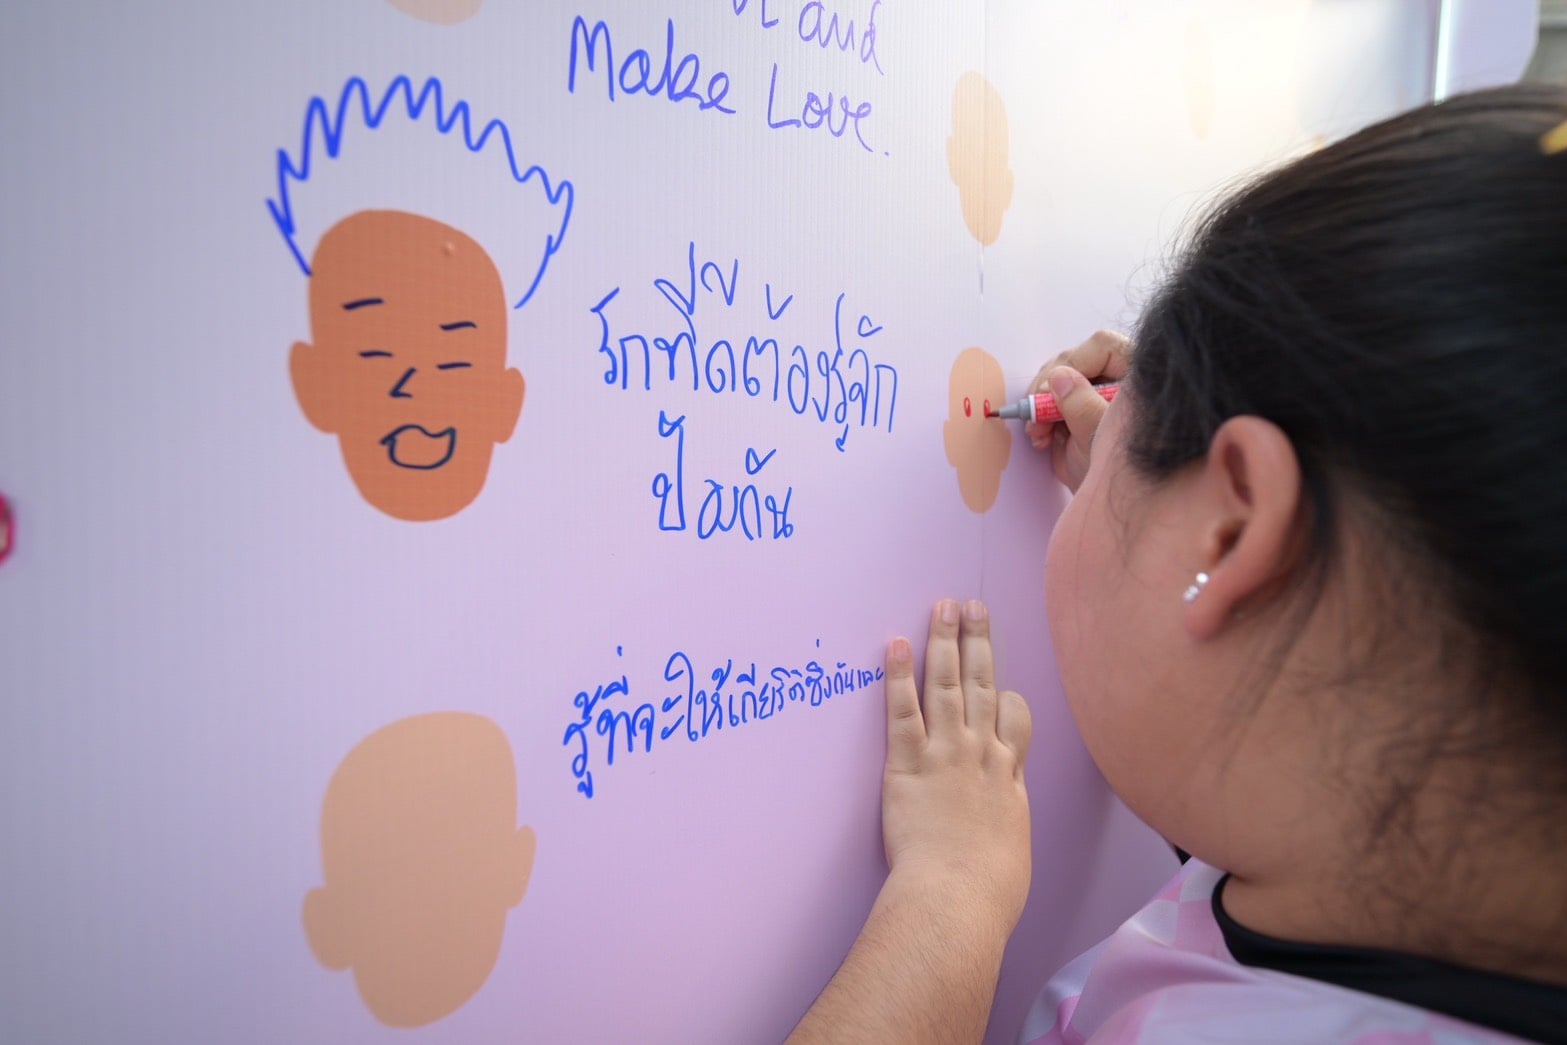 and
Make Love.
รักที่ดีต้องรู้จัก
ป้องกัน
รู้ที่จะให้เกียรติซึ่งกันและ